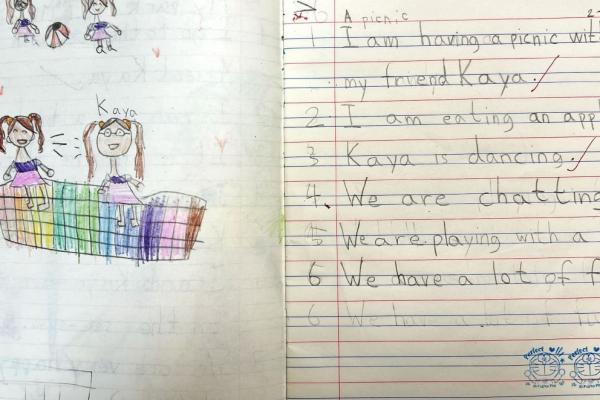 Kaya
A picnic
1 I am having a picnic with
my friend Kaya.
2 I am eating an
3 Kaya is dancing.
4. We are chatting
5 We are playing with a
6 We have a lot of
6 We have a lot of
Perfect
Perfect